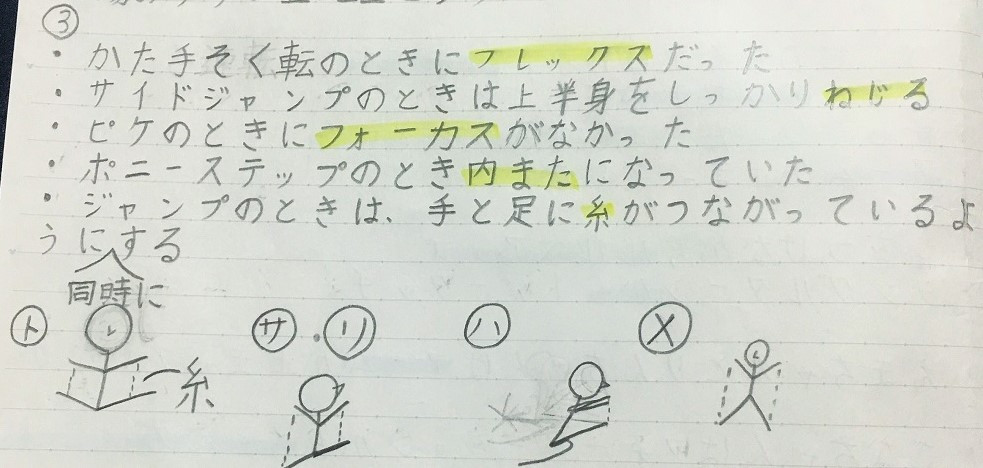 ③
・かた手そく転のときにフレックスだった
・サイドジャンプのときは上半身をしっかりねじる
・ピケのときにフォーカスがなかった
・ポニーステップのとき内またになっていた
・ジャンプのときは、手と足に糸がつながっているよ
うにする
同時に
ト サ・リ ハ メ
糸